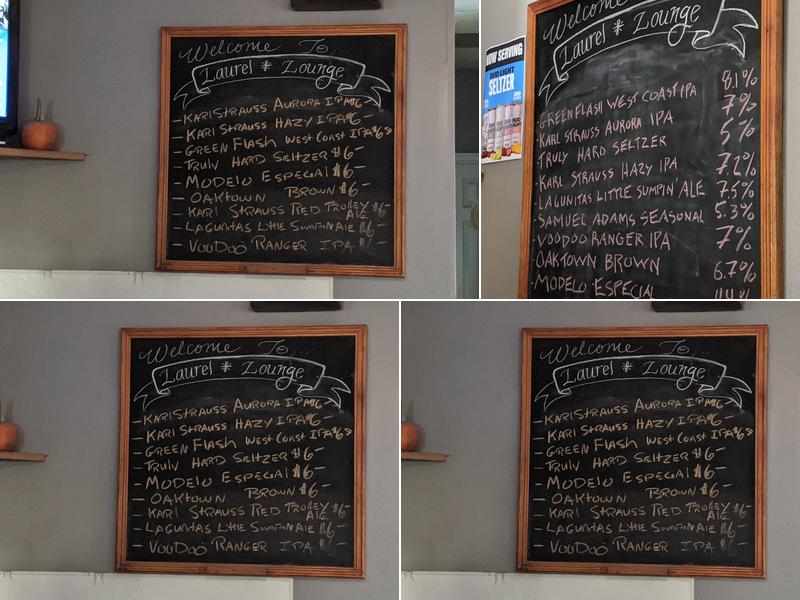 Welcome To...
Laurel * Lounge
- KARL STRAUSS AURORA IPA $6-
- KARL STRAUSS HAZY IPA $6-
- GREEN FLASH WEST COAST IPA $6-
- TRULY HARD SELTZER $6-
- MODELO ESPECIAL $6-
- OAKTOWN BROWN $6-
- KARL STRAUSS RED TROLLEY ALE $6-
- LAGUNITAS LITTLE SUMPIN ALE $6-
- VOODOO RANGER IPA
NOW SERVING
BUD LIGHT
SELTZER
Welcome
Laurel * Lounge
-GREEN FLASH WEST COAST IPA 8.1%
-KARL STRAUSS AURORA IPA 7%
-TRULY HARD SELTZER 5%
-KARL STRAUSS HAZY IPA 7.2%
-LAGUNITAS LITTLE SUMPIN' ALE 7.5%
-SAMUEL ADAMS SEASONAL 5.3%
-VOODOO RANGER IPA 7%
-OAKTOWN BROWN 6.7%
-MODELO ESPECIAL
Welcome To...
Laurel * Lounge
- KARL STRAUSS AURORA IPA $6-
- KARL STRAUSS HAZY IPA $6-
- GREEN FLASH WEST COAST IPA $6-
- TRULY HARD SELTZER $6-
- MODELO ESPECIAL $6-
- OAKTOWN BROWN $6-
- KARL STRAUSS RED TROLLEY ALE $6-
- LAGUNITAS LITTLE SUMPIN ALE $6-
- VOODOO RANGER IPA
Welcome To...
Laurel * Lounge
- KARL STRAUSS AURORA IPA $6-
- KARL STRAUSS HAZY IPA $6-
- GREEN FLASH WEST COAST IPA $6-
- TRULY HARD SELTZER $6-
- MODELO ESPECIAL $6-
- OAKTOWN BROWN $6-
- KARL STRAUSS RED TROLLEY ALE $6-
- LAGUNITAS LITTLE SUMPIN ALE $6-
- VOODOO RANGER IPA